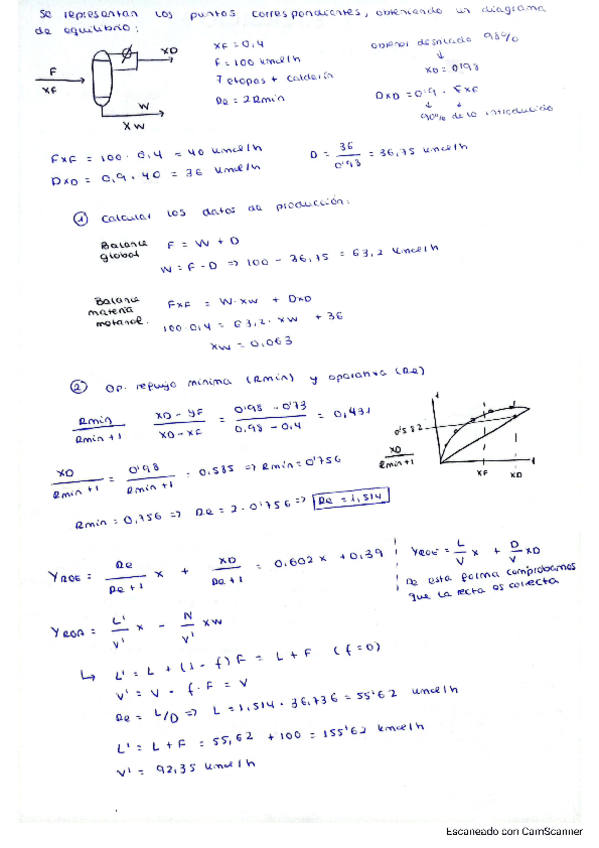 Se representan los puntos correspondientes, obteniendo un diagrama
de equilibrio:
F
XF
XD
W
XW
XF = 0,4
F = 100 kmol/h
7 etapas + calderín
Re = 2Rmin
obtener destilado 98%
XD = 0'98
DXD = 0'9 · FXF
90% de lo introducido
FXF = 100 · 0,4 = 40 kmol/h
DXD = 0,9 · 40 = 36 kmol/h
D = 36 / 0'98 = 36,75 kmol/h
① Calcular los datos de producción:
Balance global
F = W + D
W = F - D => 100 - 36,75 = 63,2 kmol/h
Balance materia metanol.
FXF = W · XW + DXD
100 · 0,4 = 63,2 · XW + 36
XW = 0,063
② Op. reflujo mínima (Rmin) y operativa (Re)
Rmin / Rmin + 1 = XD - YF / XD - XF = 0'98 - 0'73 / 0,98 - 0,4 = 0,431
0'582
XD / Rmin + 1
XF
XD
XD / Rmin + 1 = 0'98 / Rmin + 1 = 0,585 => Rmin = 0'756
Rmin = 0,756 => Re = 2 · 0'756 => Re = 1,514
YROE = Re / Re + 1 x + XD / Re + 1 = 0,602x + 0,39
YROE = L / V x + D / V XD
De esta forma comprobamos
que la recta es correcta
YROA = L' / V' x - N / V' XW
↳ L' = L + (1 - f) F = L + F (f = 0)
V' = V - f · F = V
Re = L/D => L = 1,514 · 36,736 = 55'62 kmol/h
L' = L + F = 55,62 + 100 = 155'62 kmol/h
V' = 92,35 kmol/h
Escaneado con CamScanner